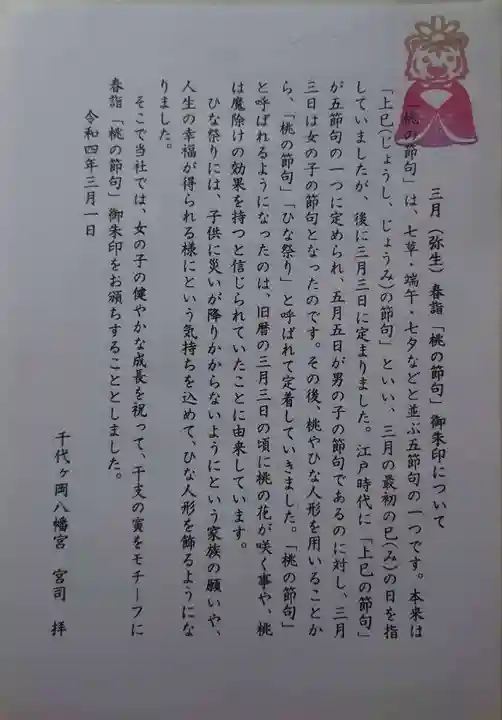 三月（弥生）春詣「桃の節句」御朱印について
「桃の節句」は、七草・端午・七夕などと並ぶ五節句の一つです。本来は
「上巳(じょうし、じょうみ)の節句」といい、三月の最初の巳(み)の日を指
していましたが、後に三月三日に定まりました。江戸時代に「上巳の節句」
が五節句の一つに定められ、五月五日が男の子の節句であるのに対し、三月
三日は女の子の節句となったのです。その後、桃やひな人形を用いることか
ら、「桃の節句」「ひな祭り」と呼ばれて定着していきました。「桃の節句」
と呼ばれるようになったのは、旧暦の三月三日の頃に桃の花が咲く事や、桃
は魔除けの効果を持つと信じられていたことに由来しています。
ひな祭りには、子供に災いが降りかからないようにという家族の願いや、
人生の幸福が得られる様にという気持ちを込めて、ひな人形を飾るようにな
りました。
そこで当社では、女の子の健やかな成長を祝って、干支の寅をモチーフに
春詣「桃の節句」御朱印をお頒ちすることとしました。
令和四年三月一日
千代ヶ岡八幡宮　宮司　拝